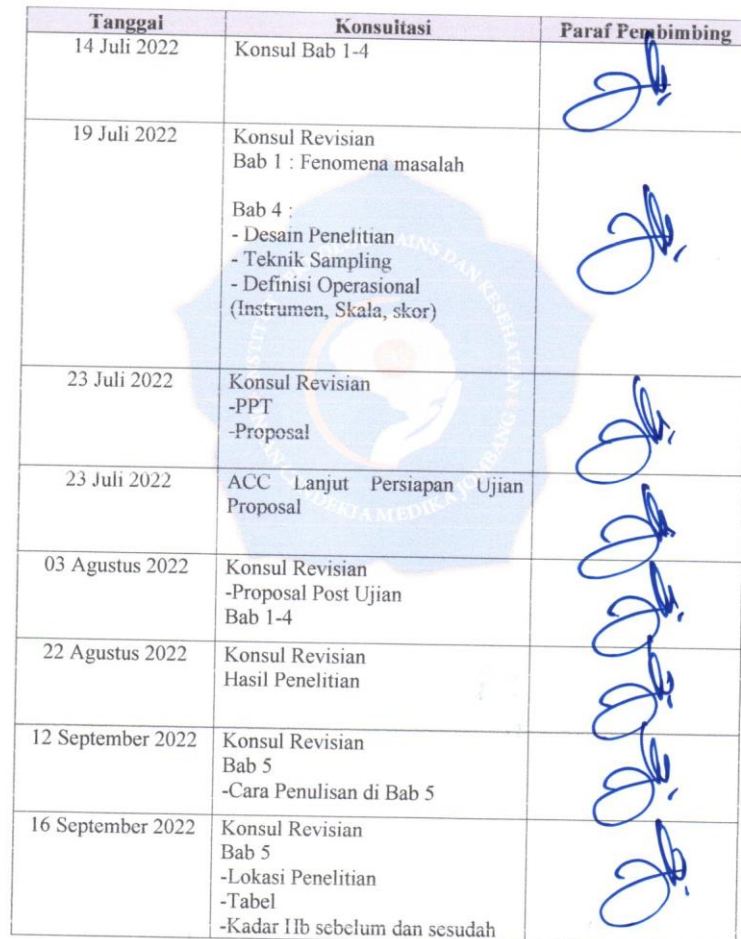 Tanggal Konsultasi Paraf Pembimbing
14 Juli 2022 Konsul Bab 1-4
19 Juli 2022 Konsul Revisian
Bab 1 : Fenomena masalah
Bab 4 :
- Desain Penelitian
- Teknik Sampling
- Definisi Operasional
(Instrumen, Skala, skor)
23 Juli 2022 Konsul Revisian
-PPT
-Proposal
23 Juli 2022 ACC Lanjut Persiapan Ujian
Proposal
03 Agustus 2022 Konsul Revisian
-Proposal Post Ujian
Bab 1-4
22 Agustus 2022 Konsul Revisian
Hasil Penelitian
12 September 2022 Konsul Revisian
Bab 5
-Cara Penulisan di Bab 5
16 September 2022 Konsul Revisian
Bab 5
-Lokasi Penelitian
-Tabel
-Kadar Hb sebelum dan sesudah